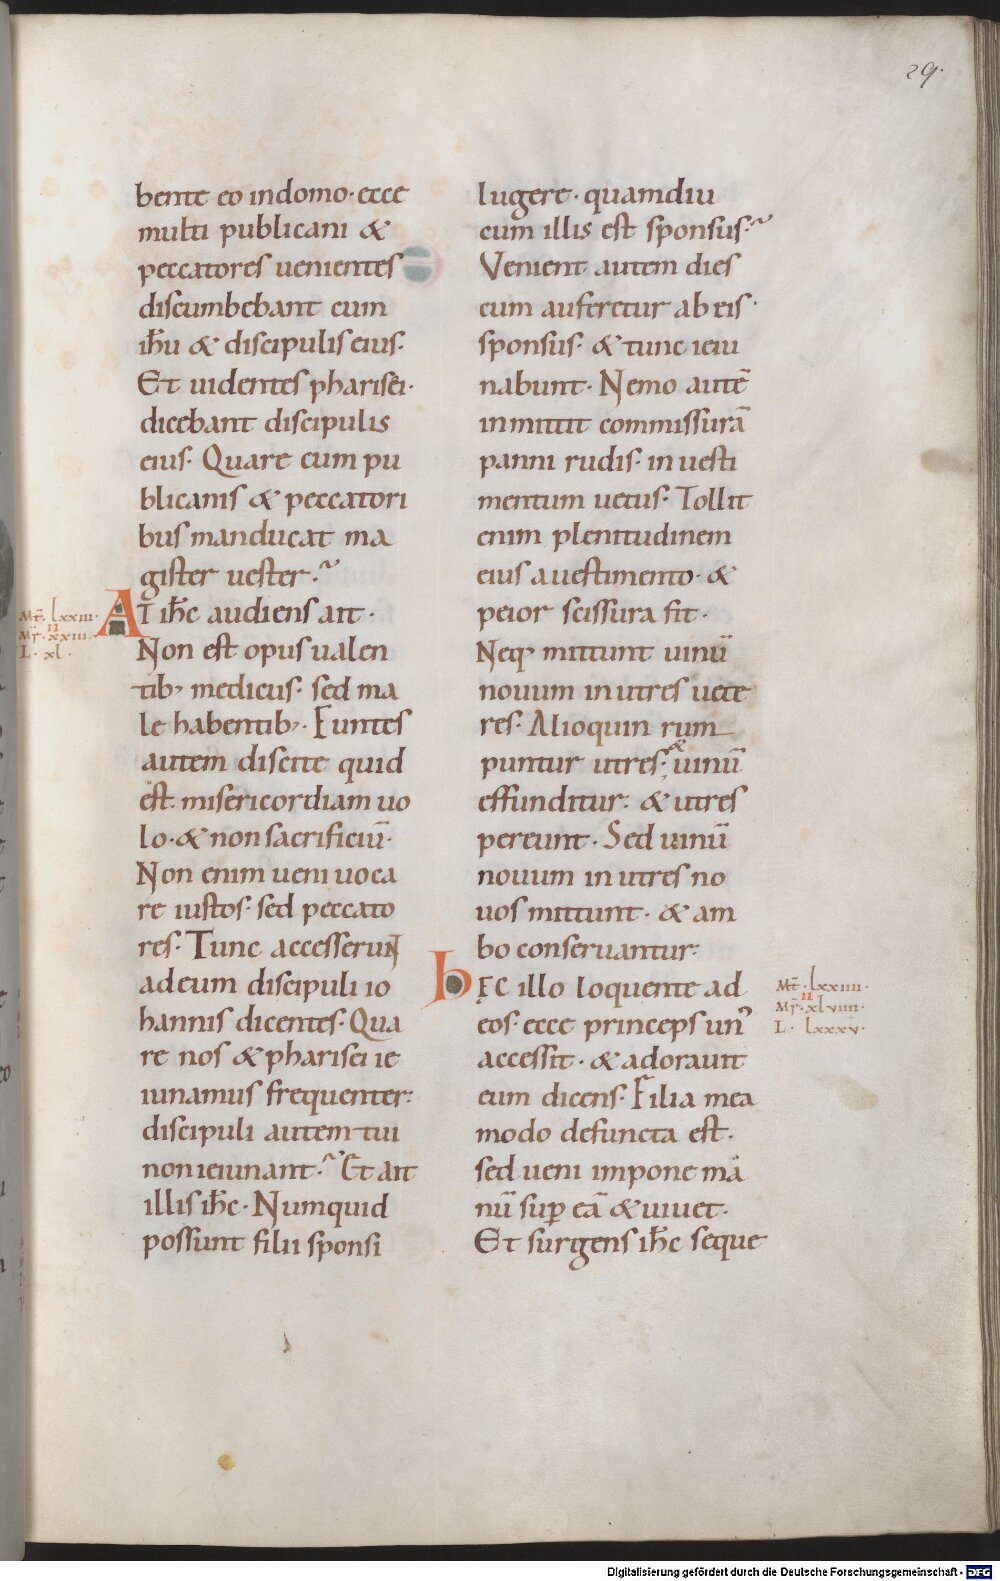 29.
bente eo indomo· ecce
multi publicani &
peccatores uenientes
discumbebant cum
ih̅u & discipulis eius·
Et uidentes pharisei·
dicebant discipulis
eius· Quare cum pu
blicanis & peccatori
bus manducat ma
gister uester·~
AT ih̅c audiens ait·
Non est opus ualen
tib; medicus· sed ma
le habentib;· Euntes
autem discite quid
est· misericordiam uo
lo· & non sacrificiū·
Non enim ueni uoca
re iustos· sed peccato
res· Tunc accesserunt
adeum discipuli io
hannis dicentes· Qua
re nos & pharisei ie
iunamus frequenter:
discipuli autem tui
non ieiunant·~ Et ait
illis ih̅c· Numquid
possunt filii sponsi
Mt̅· lxxiii·
II
Mr̅· xxiii·
L· xl·
lugere· quamdiu
cum illis est sponsus·~
Venient autem dies
cum auferetur ab eis·
sponsus· & tunc ieiu
nabunt· Nemo autē
inmittit commissurā
panni rudis· in uesti
mentum uetus· Tollit
enim plenitudinem
eius auestimento· &
peior scissura fit·
Neq; mittunt uinū
nouum in utres uete
res· Alioquin rum
puntur utres· & uinū
effunditur· & utres
pereunt· Sed uinū
nouum in utres no
uos mittunt· & am
bo conseruantur:
hęc illo loquente ad
eos· ecce princeps un᾿
accessit· & adorauit
eum dicens· Filia mea
modo defuncta est·
sed ueni impone ma
nū sup̲ eā & uiuet·
Et surgens ih̅c seque
Mt̅· lxxiiii·
II
Mr̅· xlviiii·
L· lxxxv·
Digitalisierung gefördert durch die Deutsche Forschungsgemeinschaft - DFG